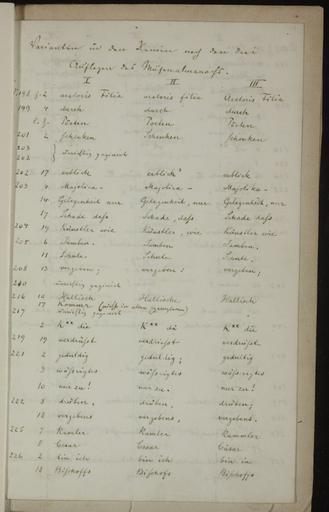 Varianten in den Xenien nach den drei
Auflagen des Musenalmanachs.
I II III
198 2 uxoris Filia uxoris filia Uxoris Filia
199 4 durch durch durch
l. Z. Pforten Pforten Pforten
201 2 schenken Schenken schenken
203
202 } unrichtig paginirt
202 17 erblickt erblickt erblickt
203 4 Majolica - Majolica - Majolika -
14 Gelegenheit nur Gelegenheit, nur Gelegenheit, nur
17 Schade daß Schade, daß Schade daß
204 19 Künstler wie Künstler, wie Künstler wie
205 6 Jamben. Jamben Jamben.
11 Schule Schule Schule.
208 13 vergeben; vergeben: vergeben;
210 unrichtig paginirt
216 12 Hallisch Hallische Hallisch
17 Kommer (nicht in allen Exemplaren)
217 unrichtig paginirt
2 K** die K** die K** die
219 19 verdrießt verdrießt verdrießt.
221 2 geduldig geduldig; geduldig
3 wäßrigtes wäßrigtes wäßrigtes
10 nur zu! nur zu. nur zu!
222 8 drüben. drüben, drüben;
18 vergebens vergebens, vergebens.
225 7 Ramler Ramler Rammler
8 Cesar Cesar Cäsar
226 2 bin ich bin ich bin ich
18 Bischoffs Bischoffs Bischoffs